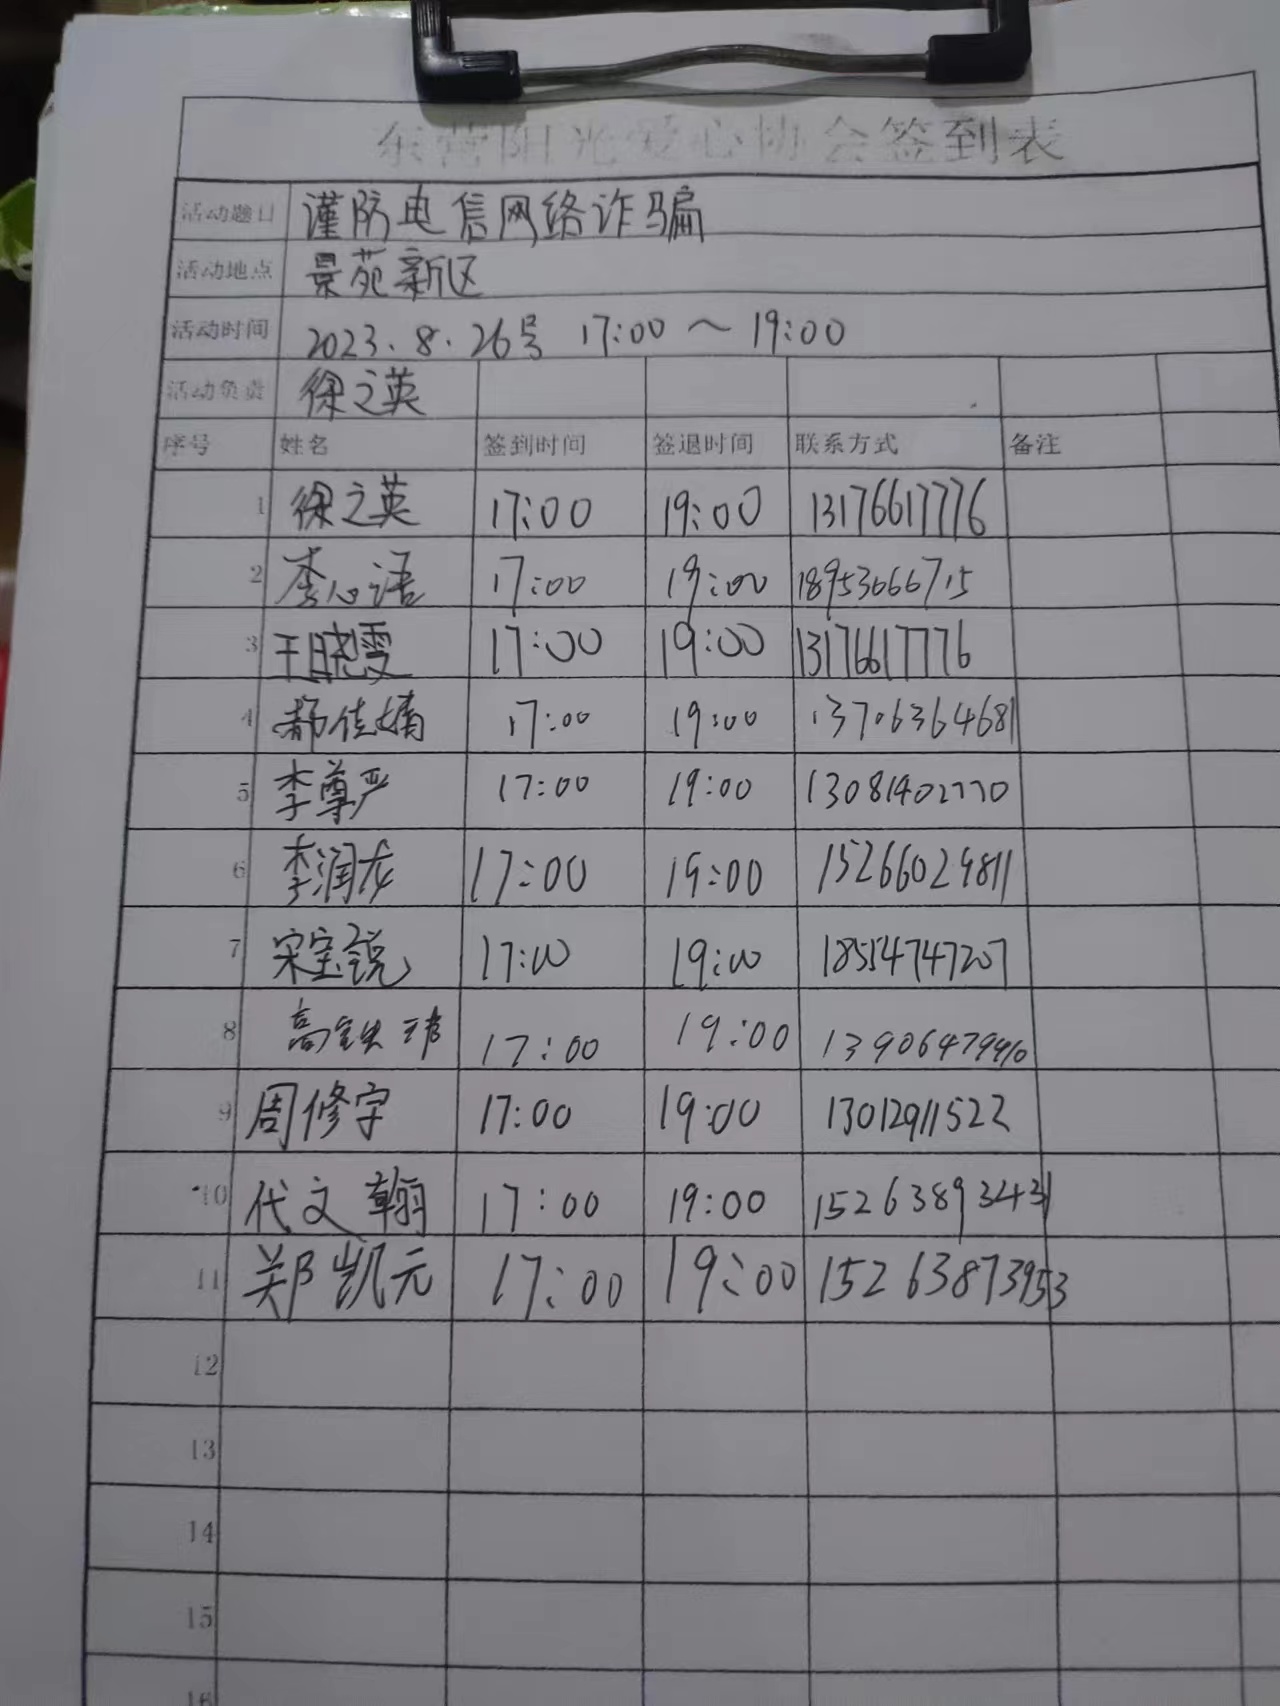 东营阳光爱心协会签到表
活动题目 谨防电信网络诈骗
活动地点 景苑新区
活动时间 2023.8.26号 17:00～19:00
活动负责 徐之英
序号 姓名 签到时间 签退时间 联系方式 备注
1 徐之英 17:00 19:00 13176617776
2 李心语 17:00 19:00 18953666715
3 王晓雯 17:00 19:00 13176617776
4 郝佳婧 17:00 19:00 13706364681
5 李尊严 17:00 19:00 13081402770
6 李润龙 17:00 19:00 15266029811
7 宋宝锐 17:00 19:00 18554747207
8 高 17:00 19:00
9 周修宇 17:00 19:00 13012911522
10 代文翰 17:00 19:00 15263893431
11 郑凯元 17:00 19:00 15263873953
12
13
14
15
16